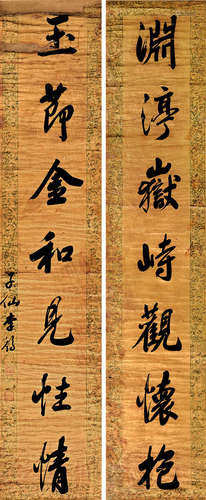 淵渟嶽峙觀懷抱
玉節金和見性情
子仙李鶴